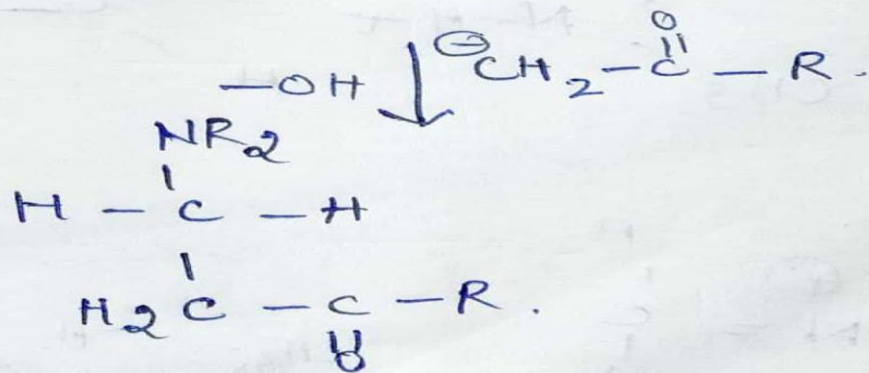 O
||
—OH ↓ ⊖CH2—C—R.
NR2
|
H—C—H
|
H2C—C—R.
||
O